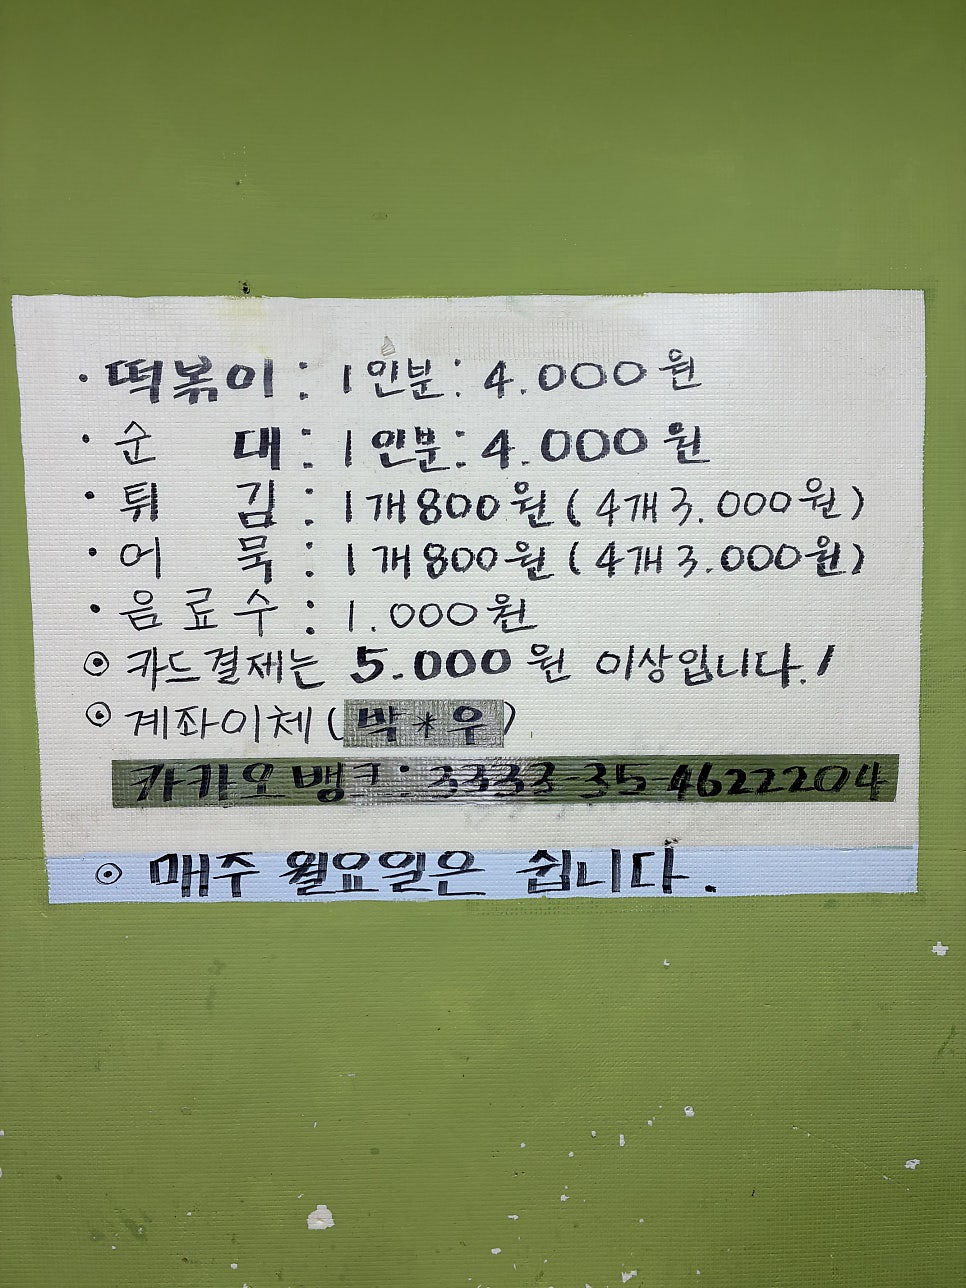 · 떡볶이 : 1인분 : 4.000원
· 순 대 : 1인분 : 4.000원
· 튀 김 : 1개 800원 (4개 3.000원)
· 어 묵 : 1개 800원 (4개 3.000원)
· 음 료 수 : 1.000원
⊙ 카드결제는 5.000원 이상입니다.!
⊙ 계좌이체 (박*우)
카카오뱅크 : 3333-35-4622204
⊙ 매주 월요일은 쉽니다.